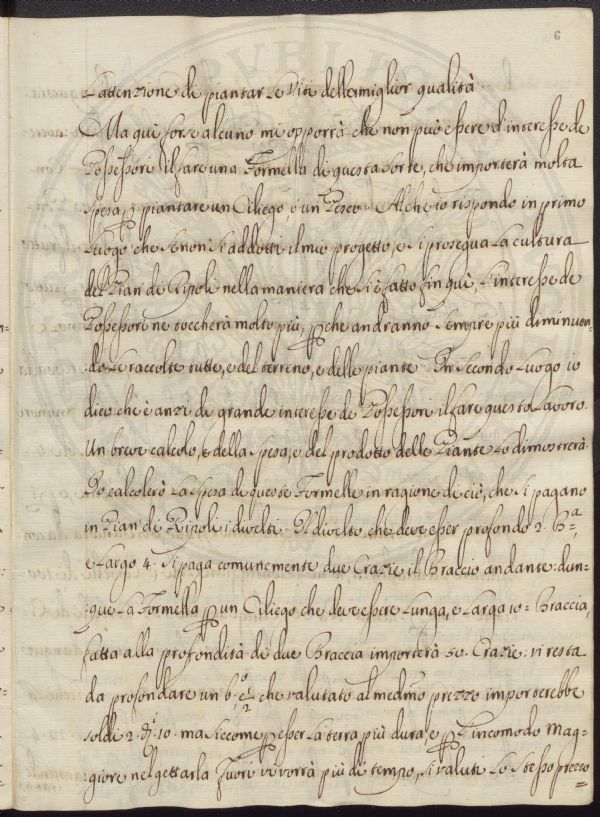 6
L'attenzione di piantar le Viti della miglior qualità.
Ma quì forse alcuno mi opporrà che non può essere d'interesse de
Possessori il fare una Formella di questa sorte, che importerà molta
spesa p piantare un Ciliego ò un Pesco. Al che io rispondo in primo
Luogo che se non si addotti il mio progetto, e si prosegua la cultura
del Pian di Ripoli nella maniera che si è fatto fin quì, L'interesse de
Possessori ne toccherà molto più, p che andranno sempre più diminuen-
:do le raccolte tutte, e del terreno, e delle piante. In secondo Luogo io
dico che è anzi di grande interesse de Possessori il fare questo Lavoro.
Un breve calcolo, e della spesa, e del prodotto delle Piante Lo dimostrerà.
Io calcolerò La spesa di queste Formelle in ragione di ciò, che si pagano
in Pian di Ripoli i divelti. Il divelto, che deve esser profondo 2. Ba
e Largo 4., si paga comunemente due Crazie il Braccio andante: dun-
:que La Formella p un Ciliego che deve essere Lunga, e Larga 10= Braccia,
fatta alla profondità di due Braccia importerà 50. Crazie: vi resta
da profondare un bo, e 1/2 che valutato al medmo prezzo importerebbe
soldi 2. di: 10. ma siccome p esser La terra più dura e p L'incomodo mag=
:giore nel gettarla fuori vi vorrà più di tempo, si valuti Lo stesso prezzo=